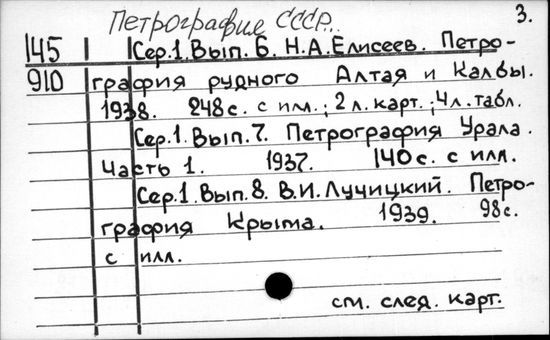 Петрография СССР...
3.
145 Сер.1. Вып. 6. Н.А. Елисеев. Петро-
910 графия рудного Алтая и Калбы.
1938. 248с. с илл.; 2 л. карт.; 4л. табл.
Сер.1. Вып. 7. Петрография Урала.
Часть 1. 1937. 140с. с илл.
Сер.1. Вып. 8. В.И. Лучицкий. Петро-
графия Крыма. 1939. 98с.
с илл.
см. след. карт.